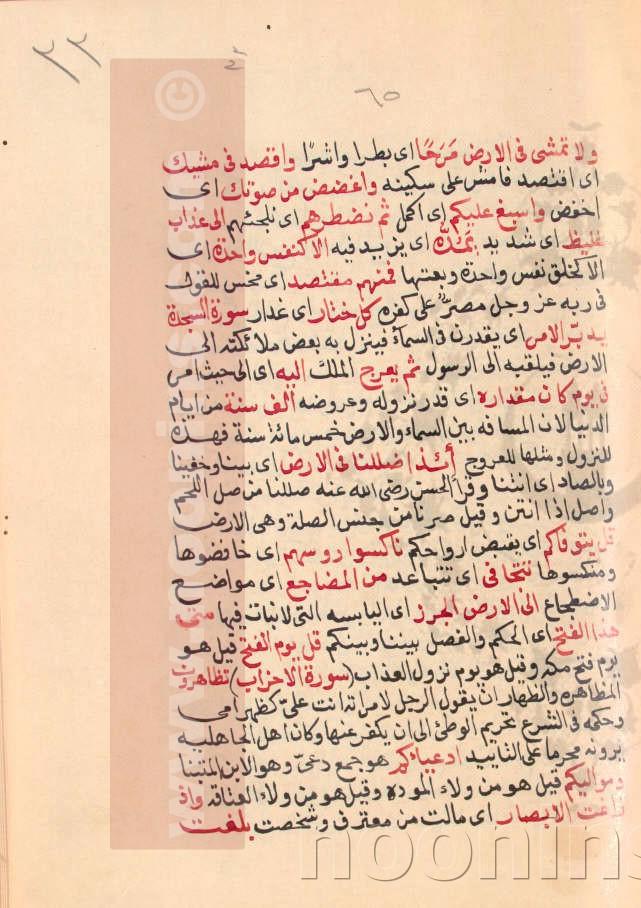 ٦٥
٣٣
ولا تمشى فى الارض مَرَحًا اى بطرا واشرًا واقصد فى مشيك
اى اقتصد فامش على سكينه واغضض من صوتك اى
اخفض واسبغ عليكم اى اكمل ثم نضطرهم اى نلجئهم الى عذاب
غليظ اى شديد يمدّه اى يزيد فيه الا كنفس واحدة اى
الا كخلق نفس واحدة وبعثها فمنهم مقتصد اى محسن للقول
فى ربه عز وجل مصرّ على كفره كل ختار اى غدار سورة السجدة
يدبّر الامر اى يقدر فى السمآء فينزل به بعض ملائكته الى
الارض فيلقيه الى الرسول ثم يعرج الملك اليه اى الى حيث امر
فى يوم كان مقداره اى قدر نزوله وعروضه الف سنة من ايام
الدنيا لان المسافه بين السماء والارض خمس مائة سنة فهذه
للنزول ومثلها للعروج أئذا ضللنا فى الارض اى بينا وخفينا
وبالصاد اى انتنا وقرأ الحسن رضى الله عنه صللنا من صل اللحم
واصل اذا انتن وقيل صرنا من جنس الصلة وهى الارض
قل يتوفاكم اى يقبض ارواحكم ناكسوا روسهم اى خافضوها
ومنكسوها تتجافى اى تتباعد من المضاجع اى مواضع
الاضطجاع الى الارض الجرز اى اليابسه التى لا نبات فيها متى
هذا الفتح اى الحكم والفصل بيننا وبينكم قل يوم الفتح قيل هو
يوم فتح مكه وقيل هو يوم نزول العذاب (سورة الاحزاب) تظاهرون
المظاهره والظهار ان يقول الرجل لامراته انت علىّ كظهر امى
وحكمه فى الشرع تحريم الوطئ الى ان يكفر عنها وكان اهل الجاهليه
يرونه محرما على التابيد ادعياءكم هو جمع دعىّ وهو الابن المتبنا
ومواليكم قيل هو من ولاء الموده وقيل هو من ولاء العتاقه واذ
زاغت الابصار اى مالت من معترفى وشخصت بلغت
noonins